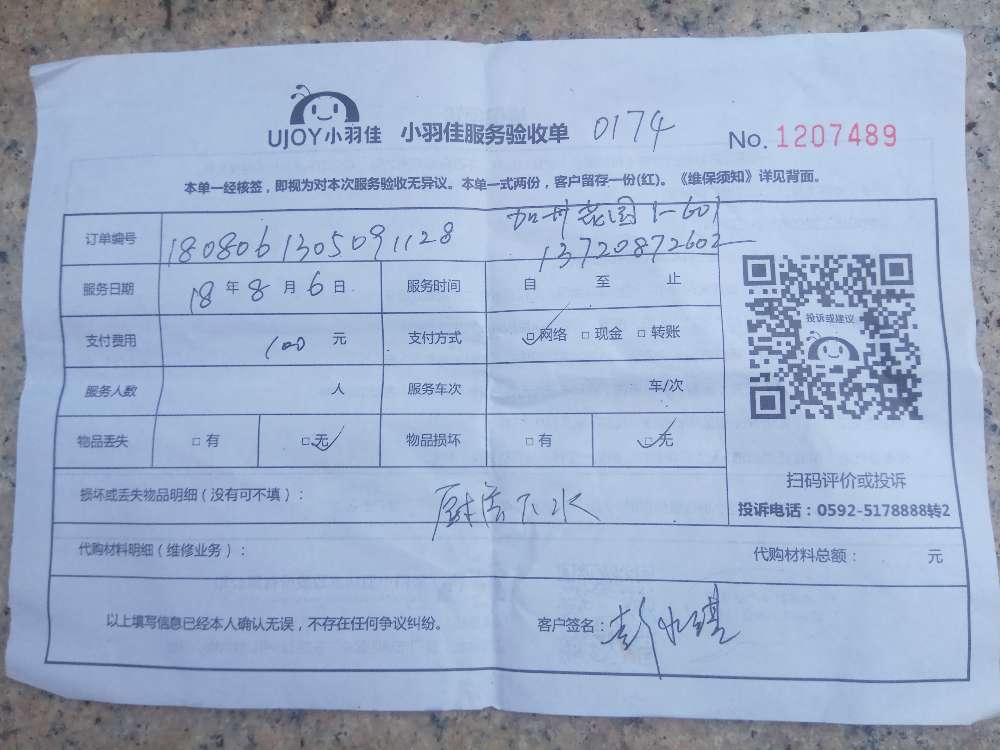 UJOY小羽佳 小羽佳服务验收单 0174 No.1207489
本单一经核签，即视为对本次服务验收无异议。本单一式两份，客户留存一份(红)。《维保须知》详见背面。
加州花园1-601
订单编号 1808061305091128 13720872602
服务日期 18年8月6日 服务时间 自 至 止
投诉或建议
支付费用 100 元 支付方式 ☑网络 □现金 □转账
服务人数 人 服务车次 车/次
物品丢失 □有 ☑无 物品损坏 □有 ☑无
扫码评价或投诉
损坏或丢失物品明细（没有可不填）： 厨房下水
投诉电话：0592-5178888转2
代购材料明细（维修业务）： 代购材料总额： 元
以上填写信息已经本人确认无误，不存在任何争议纠纷。 客户签名：彭